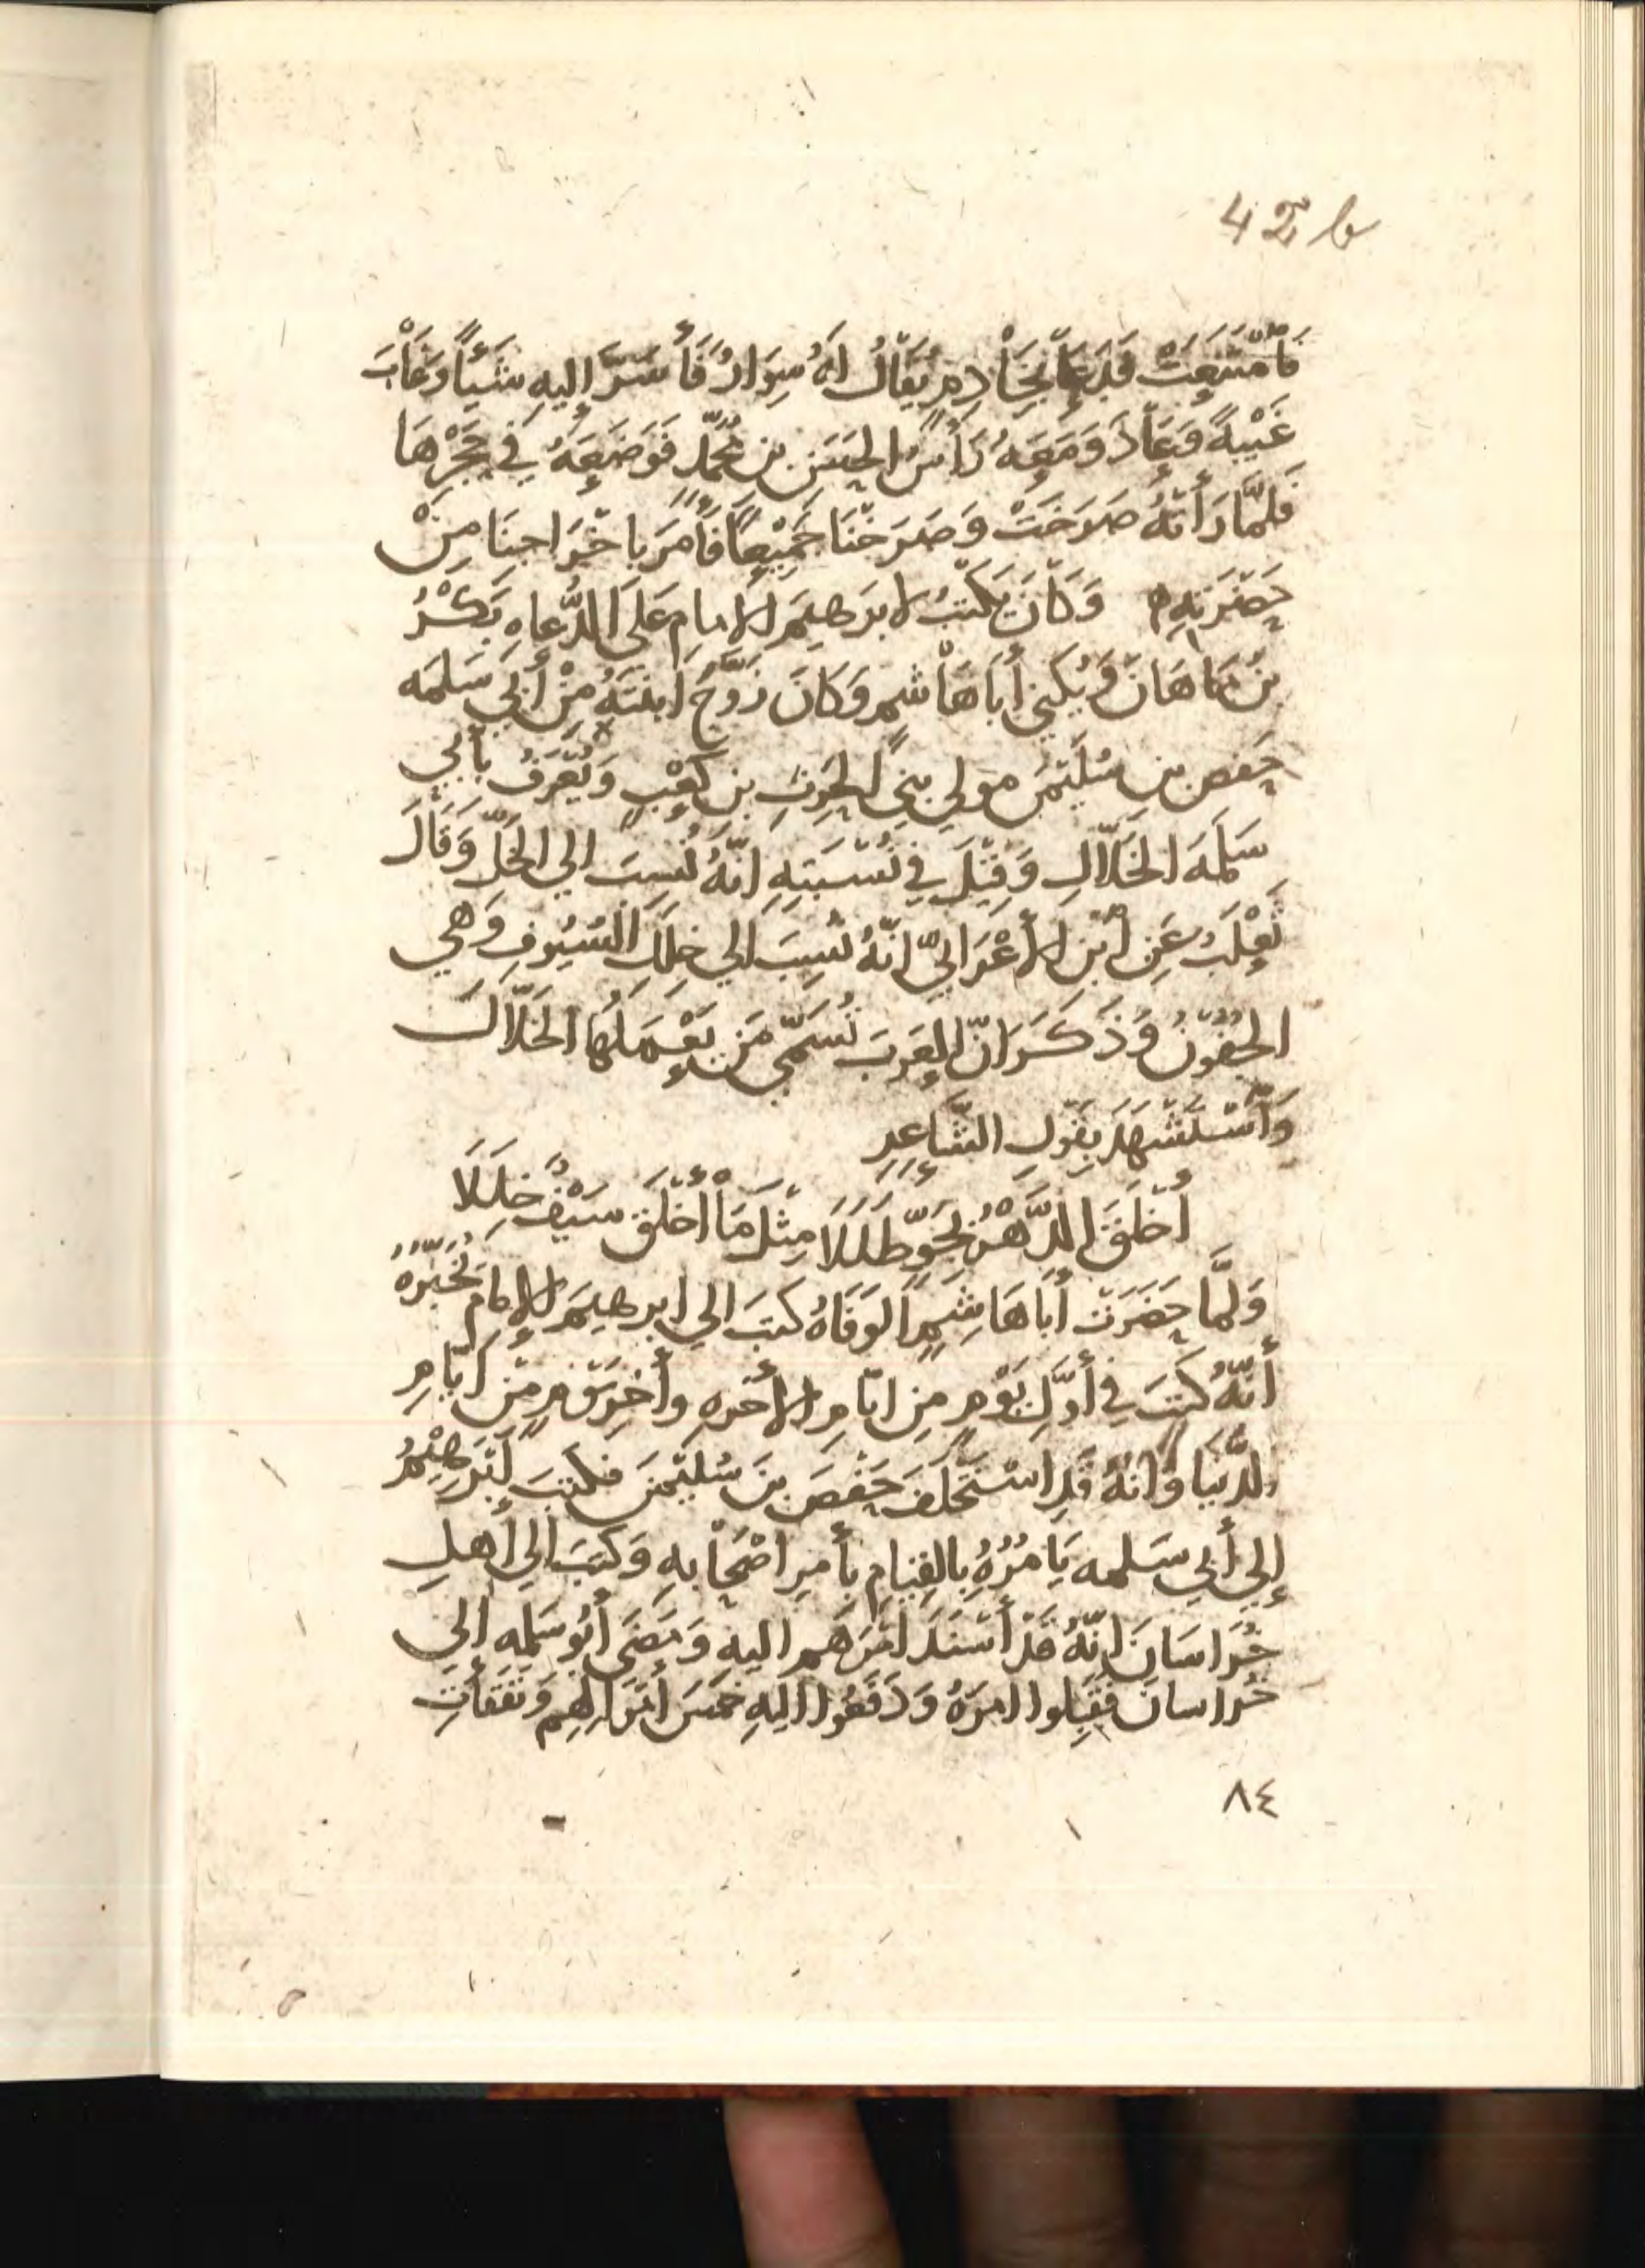 42 b
فَامْتَنَعَتْ فَدَعَا بِخَادِمٍ يُقَالُ لَهُ سِوَارٌ فَأَسَرَّ إليهِ شَيْئاً وَغَابَ
غَيْبةً وَعَادَ وَمَعَهُ رَأسُ الحسَنِ بن مُحَمَّد فَوَضَعَهُ فِي حَجْرِهَا
فَلَمَّا رَأتهُ صَرَخَتْ وَصَرَخْنَا جَمِيْعاً فَأَمَرَ بإخْرَاجِنَا مِنْ
حَضْرَتِهِ وَكَانَ يَكتُبُ لابرَهيمَ الامامِ عَلَى الدُّعاهِ بَكْرُ
بنُ مَاهَانَ وَيُكني أَبَا هَاشمٍ وَكانَ زَوَّجَ ابنتَهُ مِنْ أَبي سَلمَه
حَفصِ بنِ سُلَيْمٰنَ مولي بني الحٰرِثِ بن كَعْبٍ وَيُعْرَفُ بأَبي
سَلَمَهَ الخَلّالِ وَقِيْلَ في نُسْبَتِهِ انّهُ نُسِبَ الي الخَلِّ وَقَالَ
ثَعْلَبٌ عَنِ ابْنِ الأَعْرَابيّ انّهُ نُسِبَ الي خِلَلِ السُّيُوفِ وَهي
الجُفُوْنُ وَذَكَرَ انّ العَرَبَ تُسَمِّي مَن يَعْمَلُهَا الخَلّالَ
وَاسْتَشْهَدَ بِقَوْلِ الشَّاعِرِ
أَخلَقَ الدَّهْرُ بِجَوٍّ طَلَلَا مِثْلَ مَا أَخْلَقَ سَيْفٌ خِلَلَا
وَلَمَّا حَضَرَت أَبَا هَاشِمٍ الوَفَاهُ كَتبَ الي ابرهيمَ الإمَامِ يُخَبِّرُهُ
أَنَّهُ كَتَبَ في أَوَّلِ يَوْمٍ مِن ايّامِ الآخرهِ وأَخِر يَوْمٍ مِنْ ايّامِ
الدُّنيَا وَانّهُ قَدِ اسْتَخلَفَ حَفْصَ بنَ سُلَيْمٰنَ فكتبَ إبرهِيْمُ
إلي أَبي سَلمه يَامُرُهُ بِالقِيَامِ بأَمرِ اصْحَابهِ وَكتبَ الي أَهلِ
خُرَاسَانَ انّهُ قَدْ أَسْنَدَ امْرَهم اليهِ وَمَضَى أَبُو سَلمه إلى
خُراسان فقَبِلوا امرَهُ وَدَفعُوا اليهِ خُمسَ أَمْوَالهِم وَنَفَقَاتِ
٨٤